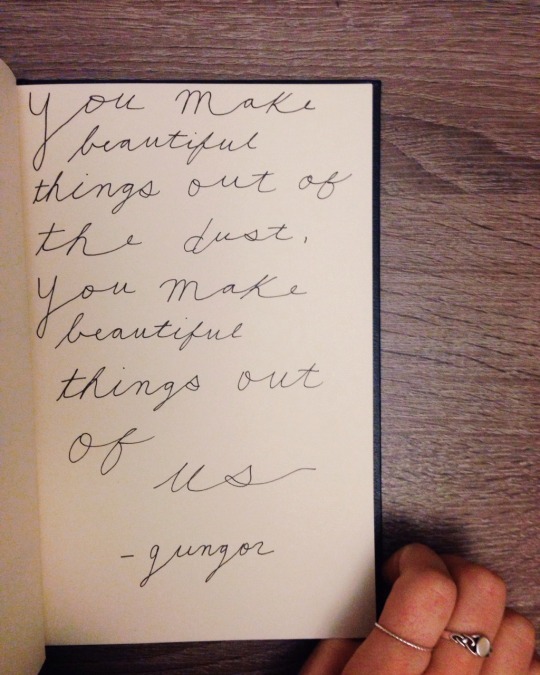 You make
beautiful
things out of
the dust.
You make
beautiful
things out
of
us
- gungor